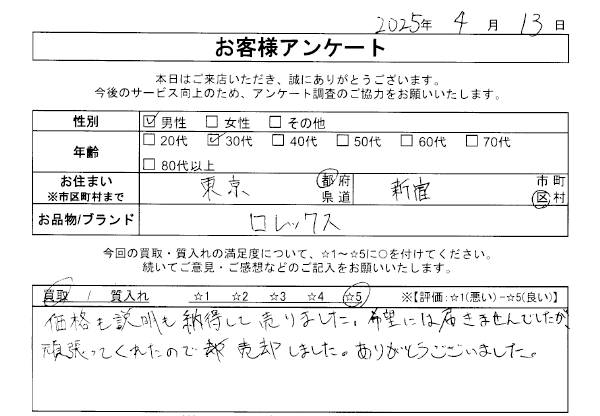 2025年 4 月 13 日
お客様アンケート
本日はご来店いただき、誠にありがとうございます。
今後のサービス向上のため、アンケート調査のご協力をお願いいたします。
性別 ☑男性 □女性 □その他
年齢 □20代 ☑30代 □40代 □50代 □60代 □70代
□80代以上
お住まい
※市区町村まで 東京 都府県道 新宿 市町区村
お品物/ブランド ロレックス
今回の買取・質入れの満足度について、☆1～☆5に○を付けてください。
続いてご意見・ご感想などのご記入をお願いいたします。
買取 / 質入れ ☆1 ☆2 ☆3 ☆4 ☆5 ※【評価:☆1(悪い)-☆5(良い)】
価格も説明も納得して売りました。希望には届きませんでしたが、
頑張ってくれたので 売却しました。ありがとうございました。